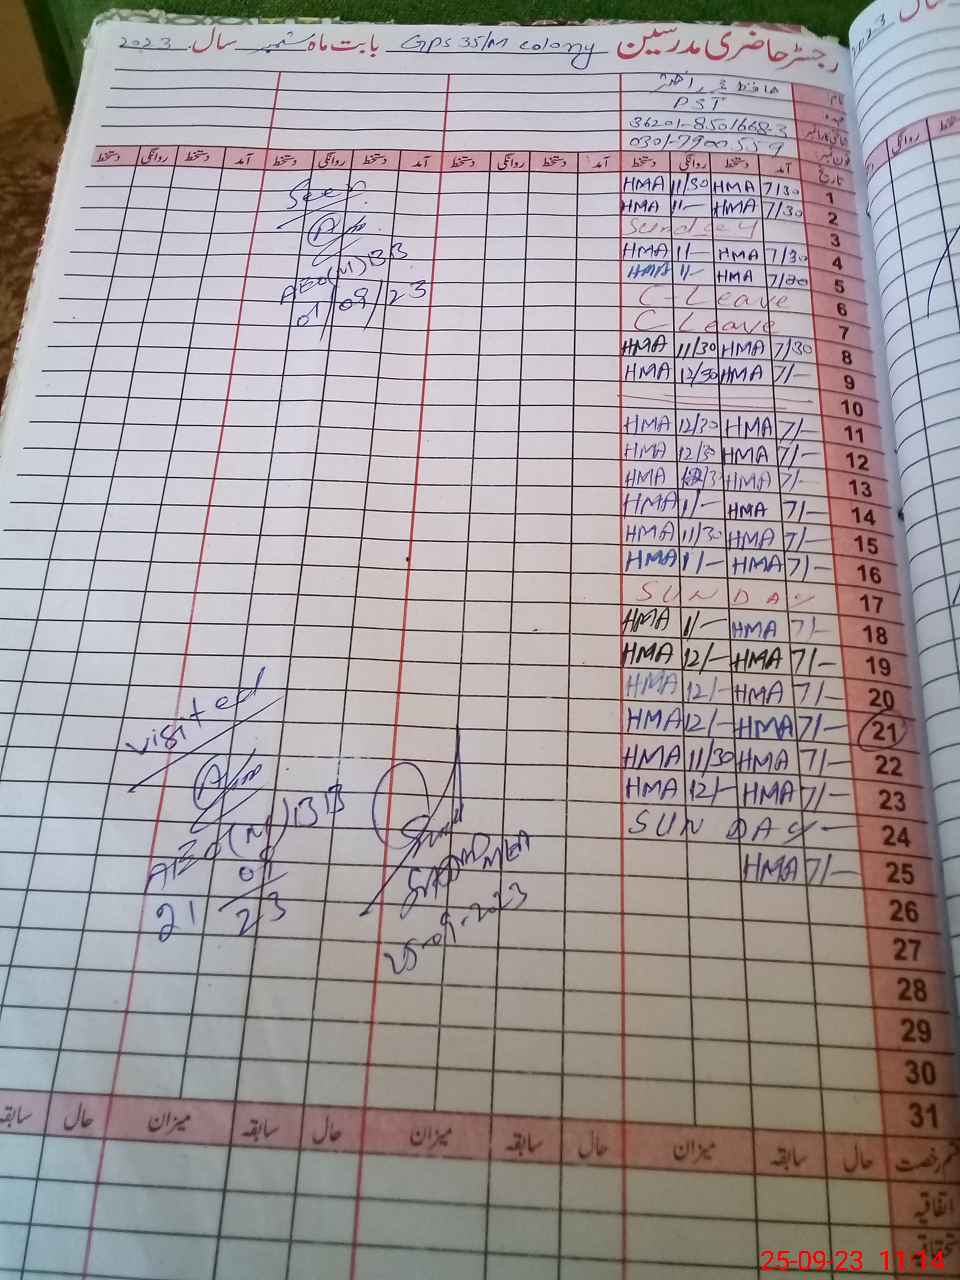 رجسٹر حاضری مدرسین GPS 35/M colony بابت ماہ ستمبر سال 2023
نام
PST
36201-8501668-3
0301-7900559
تاریخ آمد دستخط روانگی دستخط آمد دستخط روانگی دستخط آمد دستخط روانگی دستخط آمد دستخط روانگی دستخط
HMA 11/30 HMA 7/30 1
HMA 11/- HMA 7/30 2
Sunday 3
HMA 11/- HMA 7/30 4
HMA 11/- HMA 7/30 5
C-Leave 6
C Leave 7
HMA 11/30 HMA 7/30 8
HMA 12/30 HMA 7/- 9
10
HMA 12/30 HMA 7/- 11
HMA 12/30 HMA 7/- 12
HMA HMA 7/- 13
HMA 11/- HMA 7/- 14
HMA 11/30 HMA 7/- 15
HMA 11/- HMA 7/- 16
SUNDAY 17
HMA 11/- HMA 7/- 18
HMA 12/- HMA 7/- 19
HMA 12/- HMA 7/- 20
HMA 12/- HMA 7/- 21
HMA 11/30 HMA 7/- 22
HMA 12/- HMA 7/- 23
SUNDAY 24
HMA 7/- 25
26
27
28
29
30
31
Seen
AEO(M) BB
01/09/23
visited
AEO(M) BB
21 09 23
25-09-2023
قسم رخصت حال سابقہ میزان حال سابقہ میزان حال سابقہ میزان حال سابقہ
اتفاقیہ
25-09-23 11:14